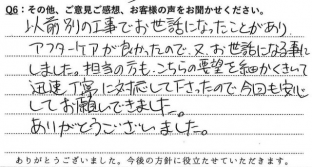 Q6：その他、ご意見ご感想、お客様の声をお聞かせください。
以前別の工事でお世話になったことがあり
アフターケアが良かったので、又、お世話になる事に
しました。担当の方も、こちらの要望を細かくきいて
迅速丁寧に対応して下さったので今回も安心
してお願いできました。
ありがとうございました。
ありがとうございました。今後の方針に役立たせていただきます。